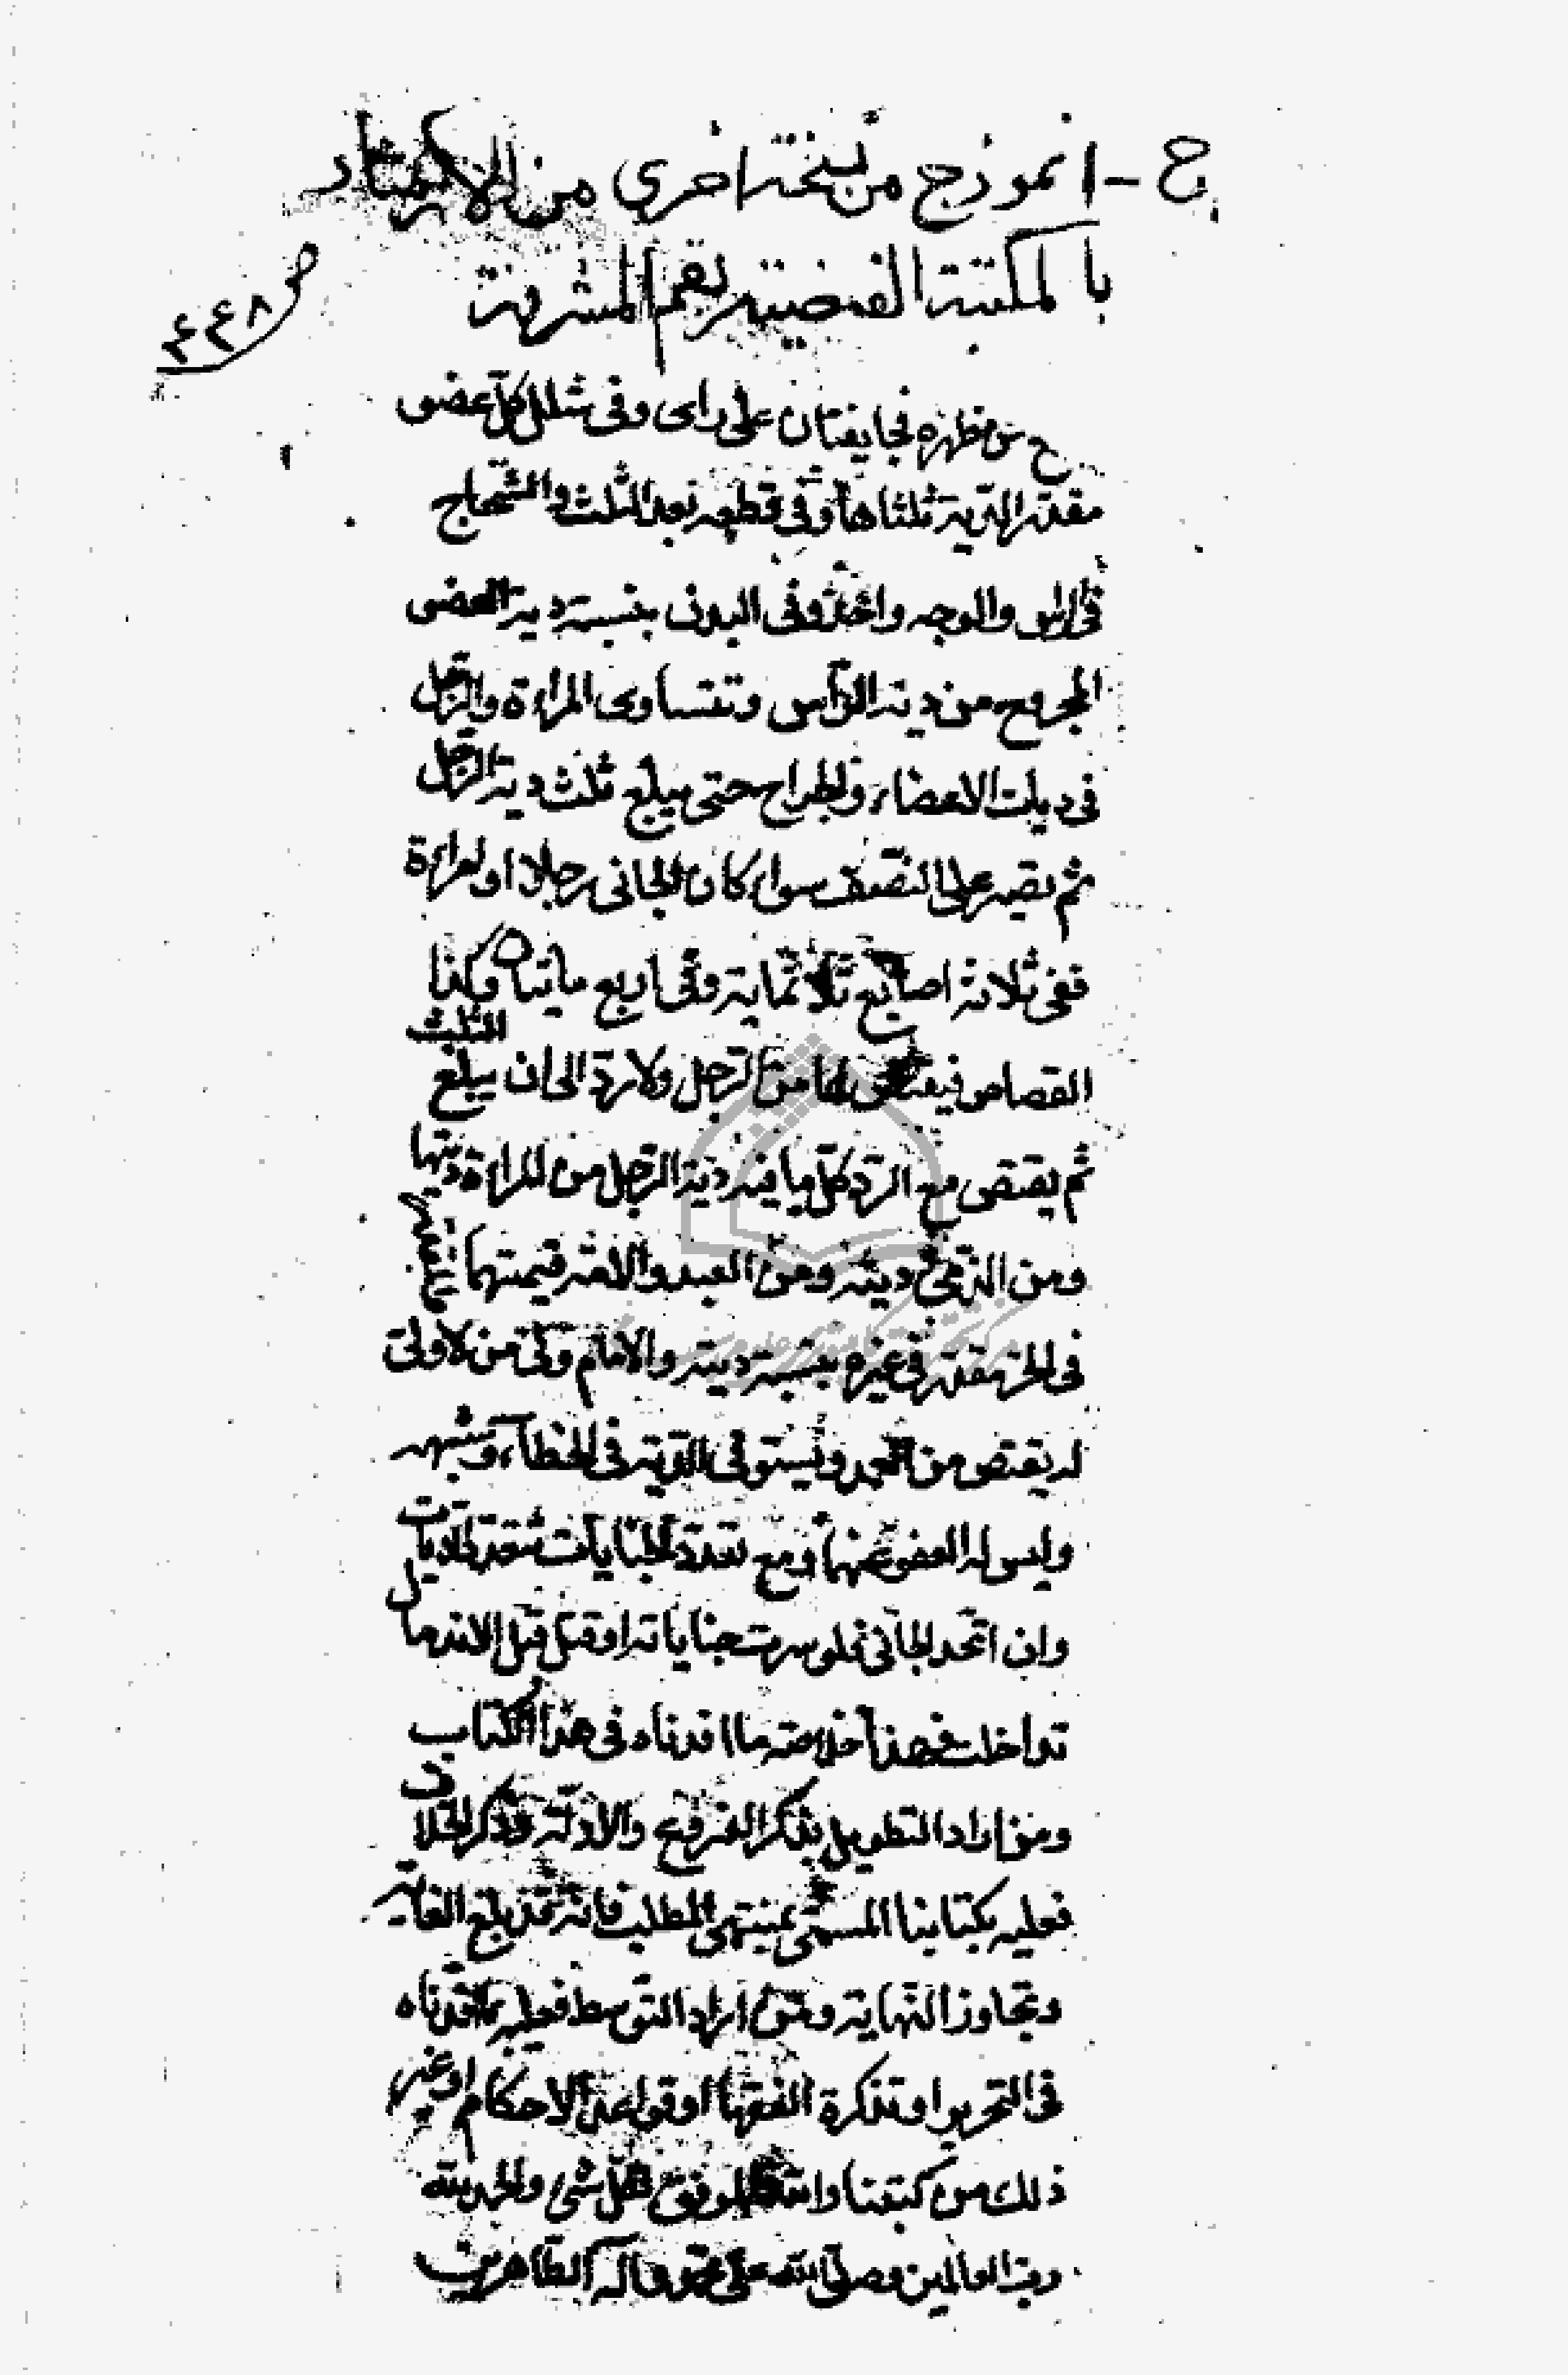 ج - انموذج من نسخته اخرى من الارشاد
بالمكتبة الفيضيته بقم المشرفة
ص ٤٤٨
من ظهره فجايفتان على راى وفى شلل كل عضو
مقدر الدية ثلثا ها وفى قطعه بعد الثلث والشجاج
فى الراس والوجه واحد وفى البدن بنسبة دية العضو
المجروح من دية الراس وتتساوى المراءة والرجل
فى ديات الاعضاء والجراح حتى يبلغ ثلث دية الرجل
ثم تصير على النصف سواء كان الجانى رجلا او امراءة
ففى ثلاثة اصابع ثلاثماية وفى اربع مايتان وكذا
القصاص فيقتص لها من الرجل ولا رد الى ان يبلغ الثلث
ثم يقتص مع الرد كل ما فيه دية الرجل من المراءة ديتها
ومن الذمى ديته ومن العبد والامة قيمتهما
فى الحر مقدر فى غيره بنسبة ديته والامام ولى من لا ولى
له يقتص من العمد ويستوفى الدية فى الخطاء وشبهه
وليس له العفو عنهما ومع تعدد الجنايات تتعدد الديات
وان اتحد الجانى فلو سرت جناياته او قتل قبل الاندمال
تداخلت فهذا خلاصة ما افدناه فى هذا الكتاب
ومن اراد التطويل بذكر الفروع والادلة وذكر الخلاف
فعليه بكتابنا المسمى بمنتهى المطلب فانه قد بلغ الغاية
وتجاوز النهاية ومن اراد التوسط فعليه بما افدناه
فى التحرير او تذكرة الفقهاء او قواعد الاحكام او غير
ذلك من كتبنا والله الموفق لكل شئ والحمد لله
رب العالمين وصلى الله على محمد وآله الطاهرين